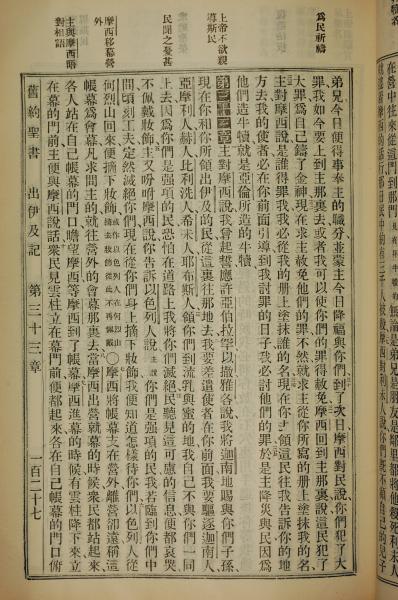 在營中往來從這門到那門
無論是弟兄是朋友是鄰里都將他殺死利未人
爲民祈禱
上帝不欲親導斯民
民聞之憂甚
摩西移幕營外
主與摩西晤對相語
弟兄今日便得事奉主的職分並蒙主今日降福與你們到了次日摩西對民說你們犯了大
罪我如今要上到主那裏去或者我可以使你們的罪得赦免摩西回到主那裏說這民犯了
大罪爲自己鑄了金神現在求主赦免他們的罪不然就求主從你所寫的册上塗抹我的名
主對摩西說是誰得罪我我必從我的册上塗抹誰的名現在你去領這民往我告訴你的地
方去我的使者必在你前面引導到我討罪的日子我必討他們的罪於是主降災與民因爲
他們造牛犢就是亞倫所造的牛犢
第三十三章 主對摩西說我曾起誓應許亞伯拉罕以撒雅各說我將迦南地賜與你們子孫
現在你和你所領出伊及的民從這裏往那地去我要差遣使者在你前面我要驅逐迦南人
亞摩利人赫人比利洗人希未人耶布斯人領你們到流乳與蜜的地我自己不與你們一同
上去因爲你們是强項的民恐怕在道路上我將你們滅絕民聽見這可慮的信息便都哀哭
不佩戴妝飾主又吩咐摩西說你告訴以色列人說主說你們是强項的民我若臨到你們中
間頃刻工夫定然滅絕你們現在從你們身上摘下妝飾我便知道怎樣待你們以色列人從
何烈山回來便摘下妝飾或作以色列人在何烈山摘去妝飾從此不再佩戴○摩西將帳幕支在營外離營卻遠稱這
帳幕爲會幕凡求問主的就往營外的會幕那裏去當摩西出營就幕的時候衆民都站起來
各人站在自己帳幕的門口瞻望摩西等摩西到了帳幕摩西進幕的時候有雲柱降下來立
在幕的門前主便與摩西說話衆民見雲柱立在幕門前便都起來各在自己帳幕的門口俯
舊約聖書 出伊及記 第三十三章 一百二十七